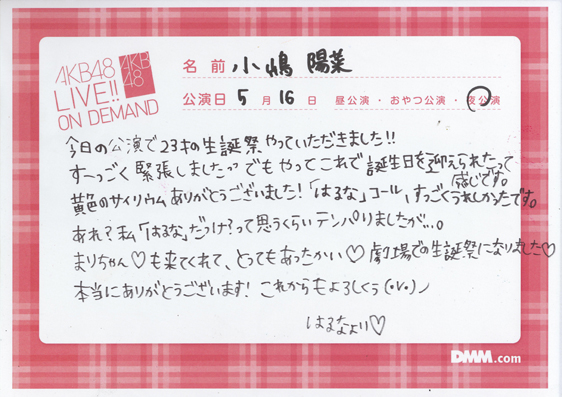 AKB48
LIVE!!
ON DEMAND
AKB
48
名前 小嶋 陽菜
公演日 5月16日 昼公演・おやつ公演・夜公演
今日の公演で23才の生誕祭やっていただきました!!
すーっごく緊張しましたっ でもやってこれで誕生日を迎えられたって
感じです。
黄色のサイリウムありがとうございました!「はるな」コール、すっごくうれしかったです。
あれ?私「はるな」だっけ?って思うくらいテンパりましたが...。
まりちゃん♡も来てくれて、とってもあったかい♡劇場での生誕祭になりました♡
本当にありがとうございます! これからもよろしくぅ(•v•)ノ
はるなより♡
DMM.com